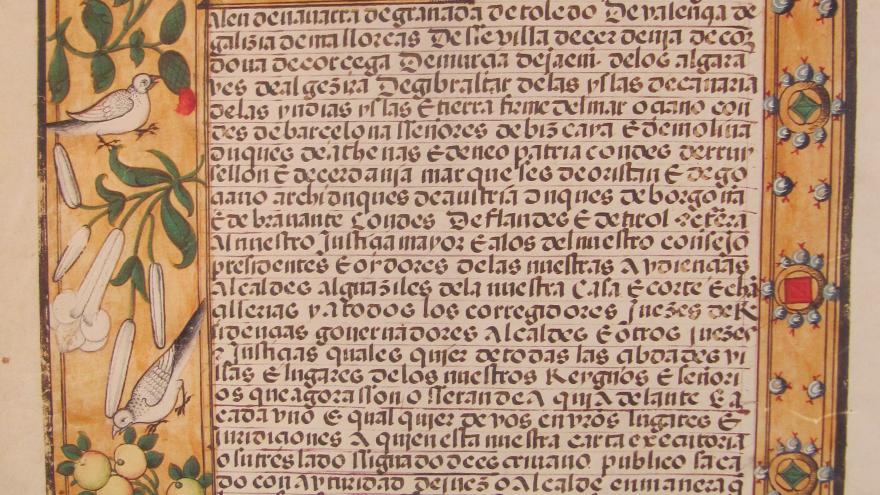 Alen denavarra de granada de toledo De valençia de
galizia de mallorcas De sevilla de cerdenia de cor
dova de corcega De murcia de jaen. delos algar
ves de algezira De gibraltar de las yslas de canaria
de las yndias yslas E tierra firme del mar oçano con
des de barcelona señores de bizcaya E de molina
duques de athenas E de neo patria condes de rruy
sellon E de cerdania marqueses de oristan E de go
çiano archiduques de austria duques de borgoña
E de bravante Condes De flandes E de tirol
Al nuestro Justiçia mayor E alos del nuestro consejo
presidentes E oydores de las nuestras Avdiençias
Alcaldes alguaziles dela nuestra Casa E corte E cha
çillerias y a todos los corregidores juezes de R
sidençias governadores Alcaldes E otros juezes
E Justiçias quales quier de todas las çibdades vi
llas E lugares de los nuestros Reynos E señori
os que agora son o seran de A qui A delante E a
cada vno E qual quier de vos en vros lugares E
juridiciones A quien esta nuestra carta executoria
o su treslado signado de escrivano publico saca
do con Avtoridad de juez o Alcalde en manera q